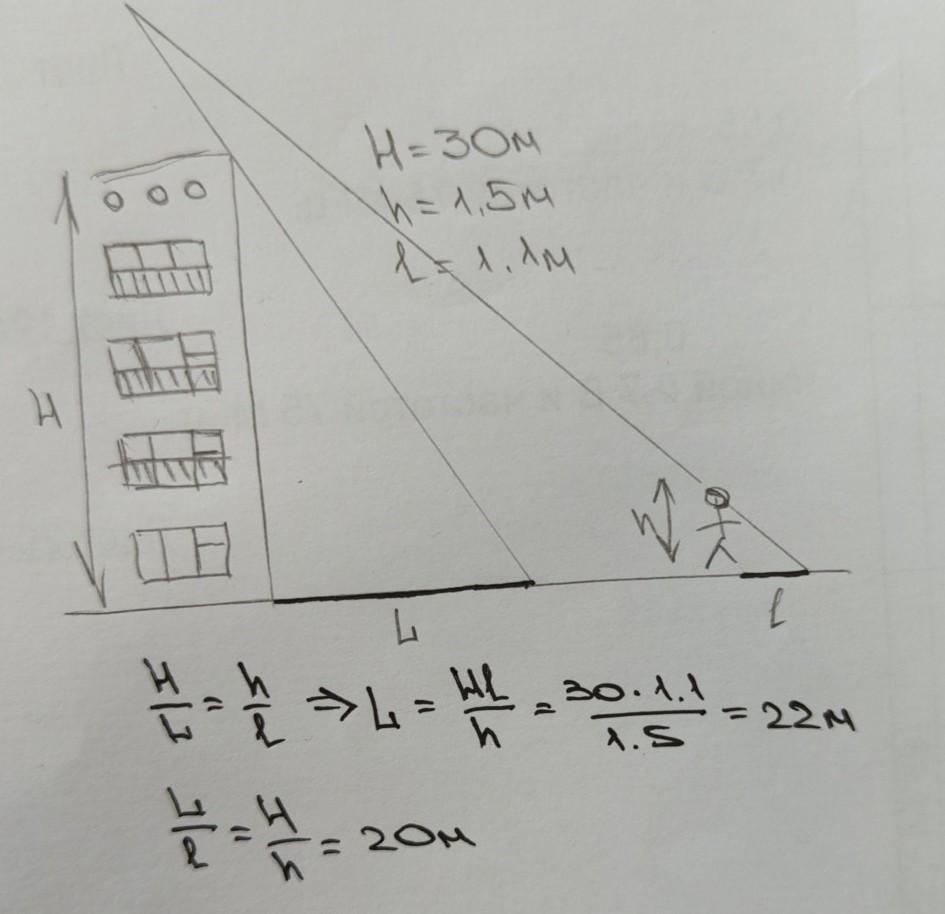 H = 30м
h = 1,5м
l = 1.1м
H
h
L
l
H/L = h/l ⇒ L = Hl/h = 30·1.1/1.5 = 22м
L/l = H/h = 20м